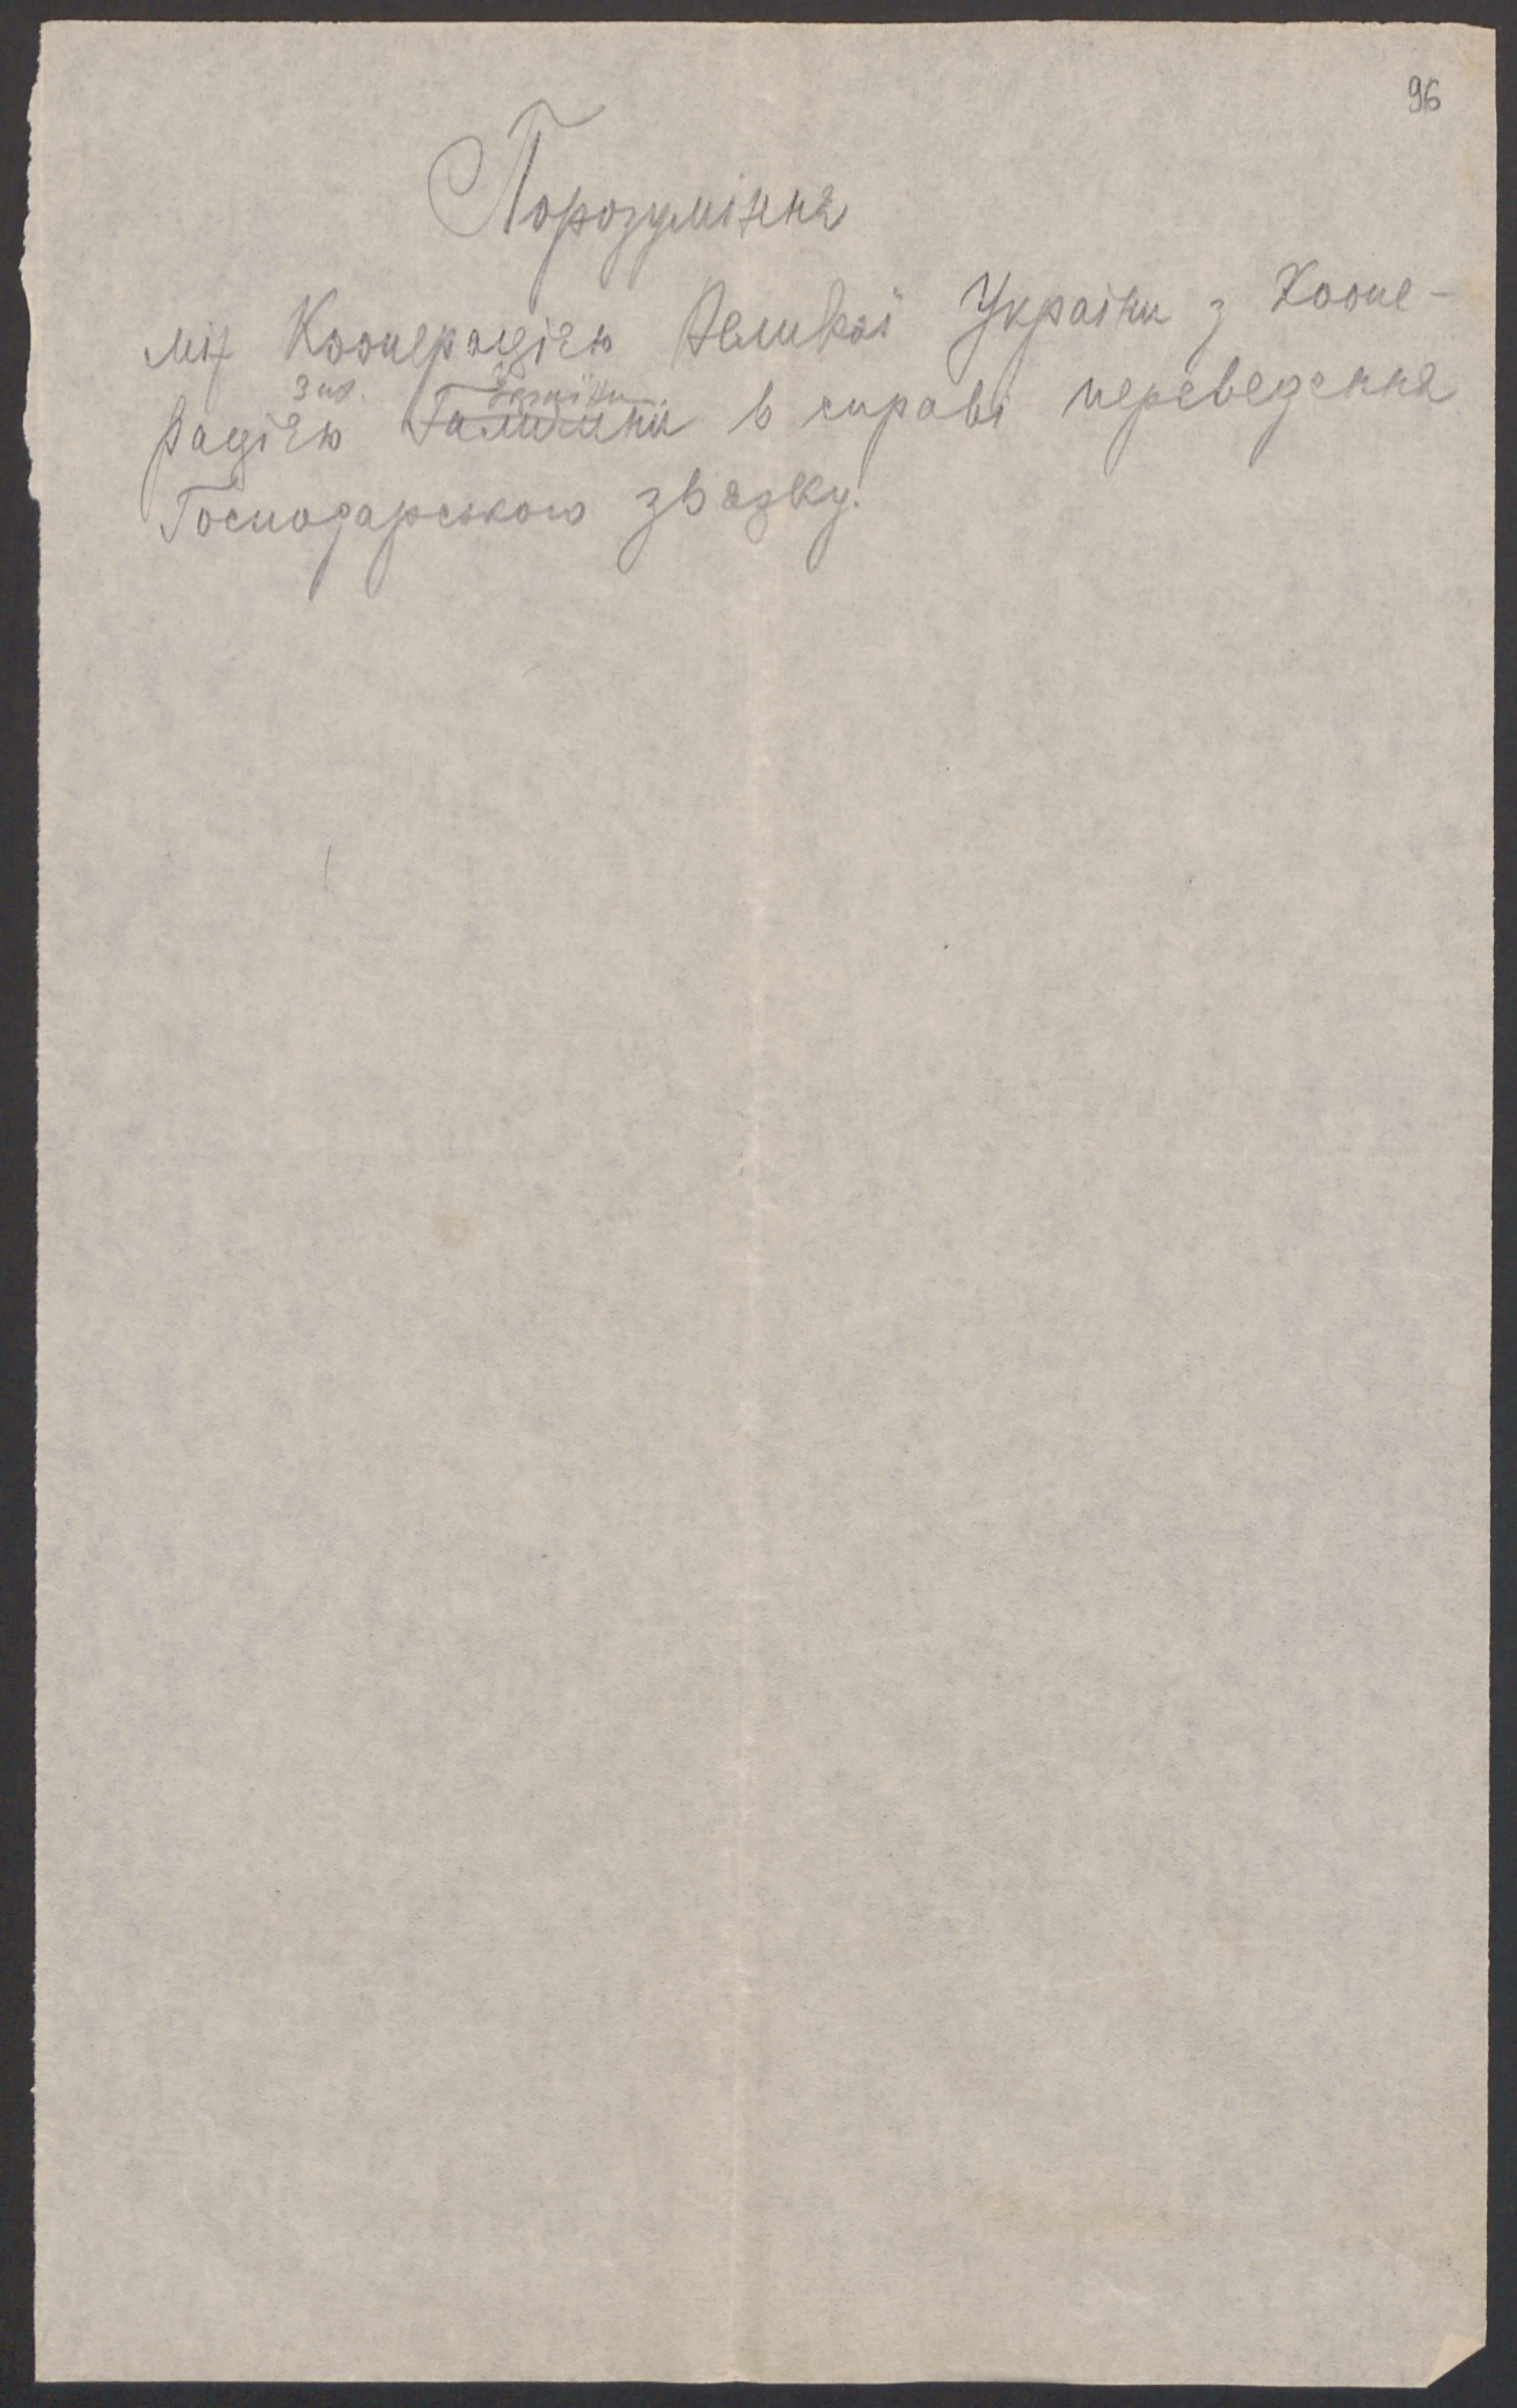 96
Порозуміння
між Кооперацією Великої України з Коопе-
Зах. України
рацією Галичини в справі переведення
Господарського звязку.